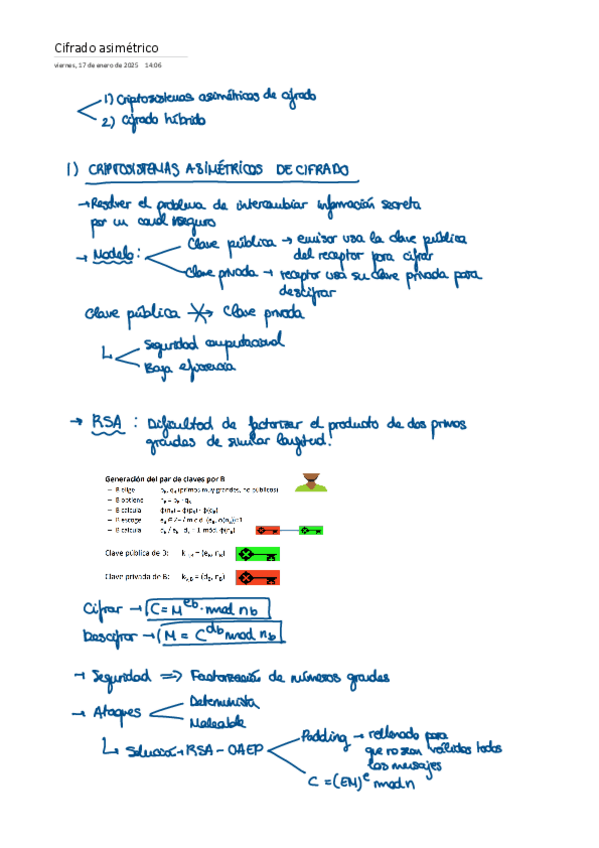 Cifrado asimétrico
viernes, 17 de enero de 2025 14:06
1) Criptosistemas asimétricos de cifrado
2) Cifrado híbrido
1) CRIPTOSISTEMAS ASIMÉTRICOS DE CIFRADO
→ Resolver el problema de intercambiar información secreta
por un canal inseguro
→ Modelo:
Clave pública → emisor usa la clave pública
del receptor para cifrar
Clave privada → receptor usa su clave privada para
descifrar
Clave pública Clave privada
Seguridad computacional
Baja eficiencia
→ RSA : Dificultad de factorizar el producto de dos primos
grandes de similar longitud.
Generación del par de claves por B
– B elige
– B obtiene
– B calcula
– B escoge
– B calcula
Clave pública de B:
Clave privada de B:
Cifrar → C = M^eb · mod nb
Descifrar → M = C^db mod nb
→ Seguridad => Factorización de números grandes
→ Ataques
Determinista
Maleable
Solución → RSA-OAEP
Padding → rellenado para
que no sean válidos todos
los mensajes
C = (EM)^e mod n